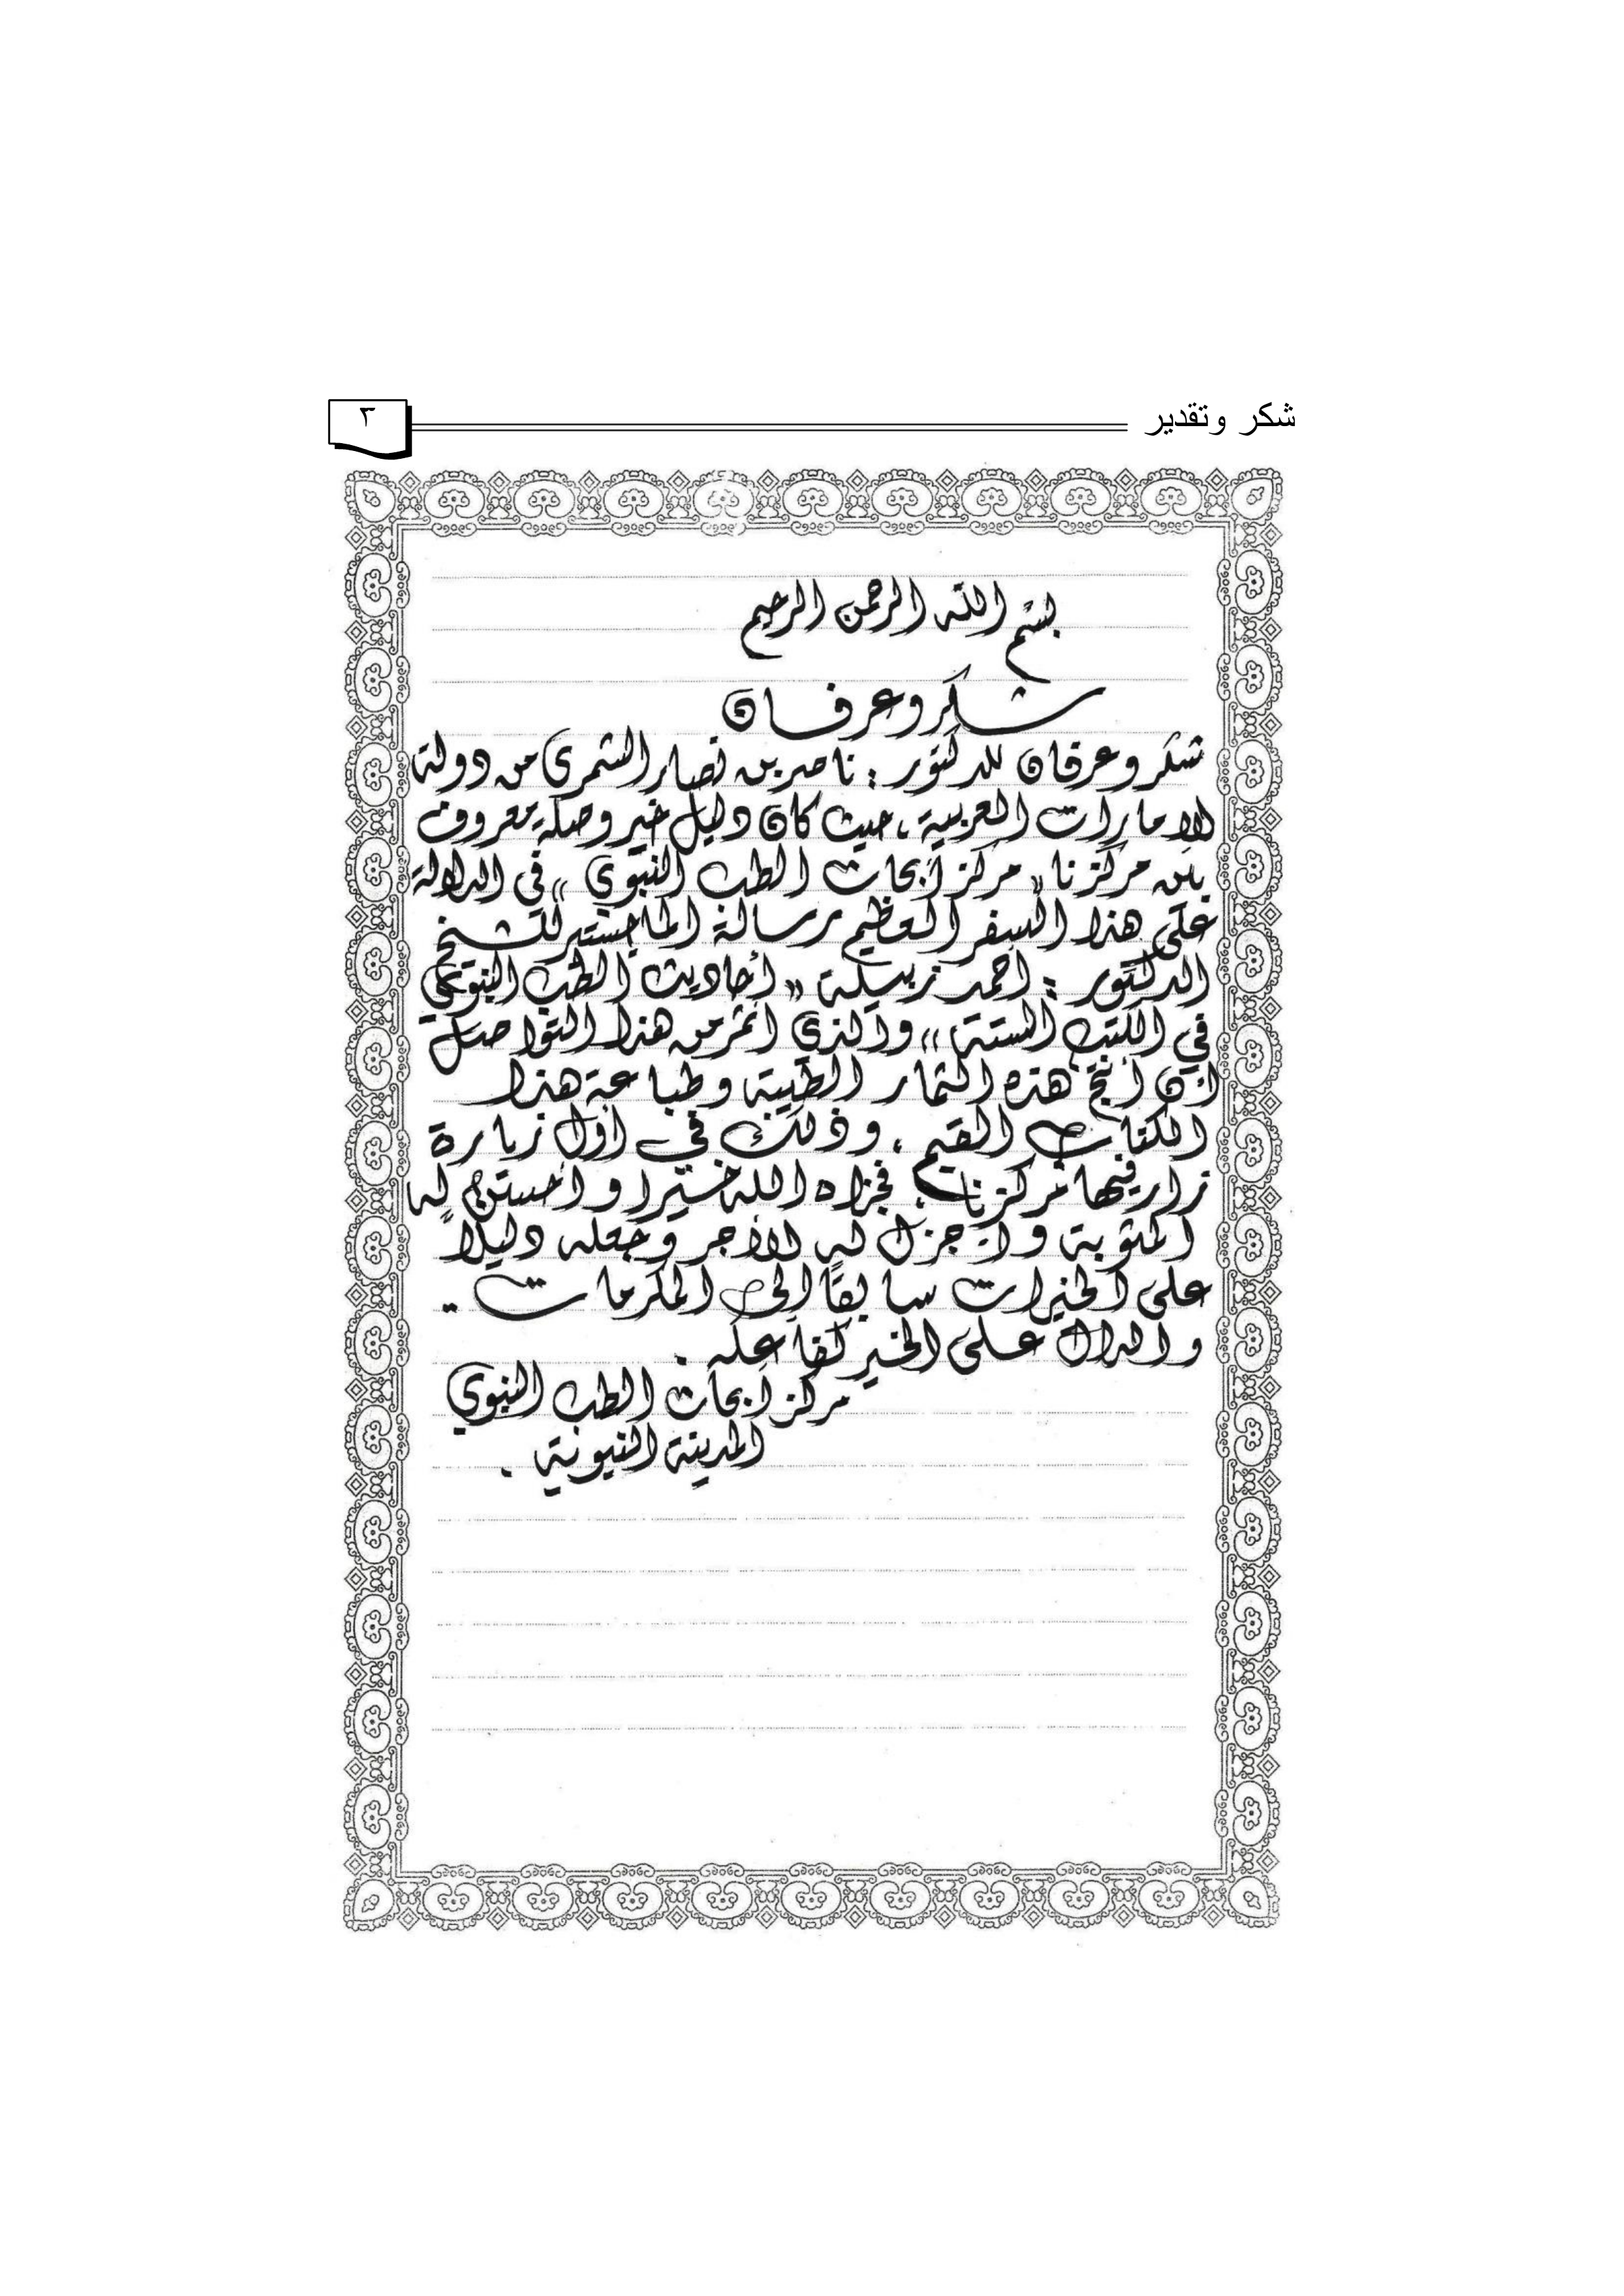 شكر وتقدير
٣
بسم الله الرحمن الرحيم
شكر وعرفان
شكر وعرفان للدكتور : ناصر بن نصار الشمري من دولة
الامارات العربية ، حيث كان دليل خير وصلة معروف
بين مركزنا « مركز أبحاث الطب النبوي » في الدلالة
على هذا السفر العظيم رسالة الماجستير للشيخ
الدكتور : أحمد زبيلة « أحاديث الطب النبوي
في الكتب الستة » والذي أثمر من هذا التواصل
أن أنتج هذه الثمار الطيبة وطباعة هذا
الكتاب القيم ، وذلك في أول زيارة
زار فيها مركزنا ، فجزاه الله خيرا وأحسن له
المثوبة وأجزل له الأجر وجعله دليلاً
على الخيرات سابقاً إلى المكرمات ..
والدال على الخير كفاعله .
مركز أبحاث الطب النبوي
المدينة النبوية .